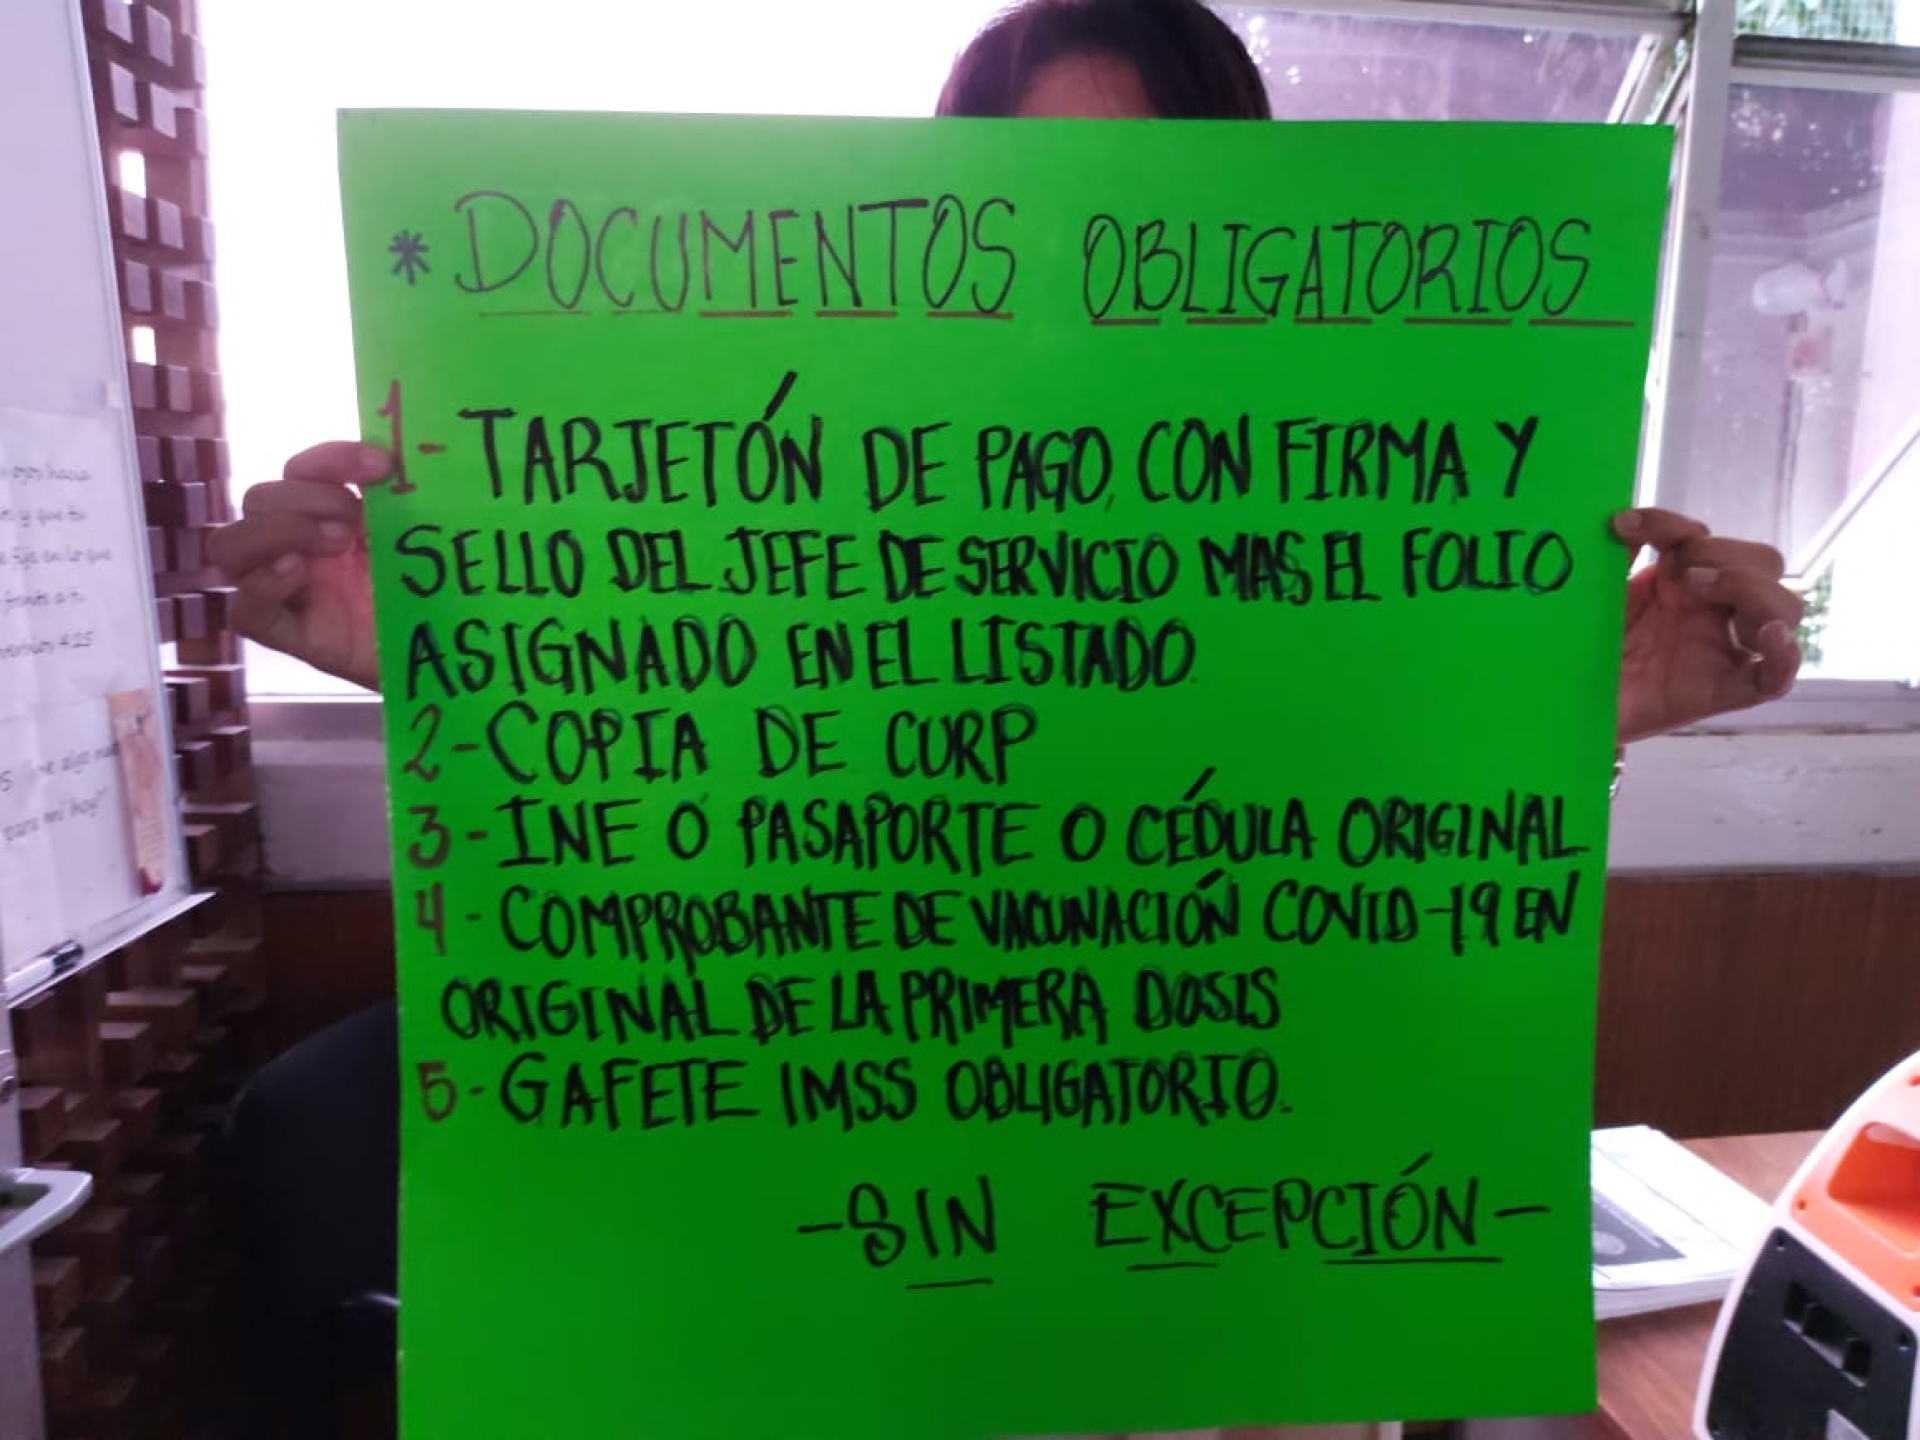 * DOCUMENTOS OBLIGATORIOS
1- TARJETÓN DE PAGO, CON FIRMA Y
SELLO DEL JEFE DE SERVICIO MAS EL FOLIO
ASIGNADO EN EL LISTADO.
2- COPIA DE CURP
3- INE O PASAPORTE O CÉDULA ORIGINAL
4- COMPROBANTE DE VACUNACIÓN COVID-19 EN
ORIGINAL DE LA PRIMERA DOSIS
5- GAFETE IMSS OBLIGATORIO.
-SIN EXCEPCIÓN-
ojos hacia
y que tu
fije en lo que
frente a ti
4:25
algo
para mi hoy"